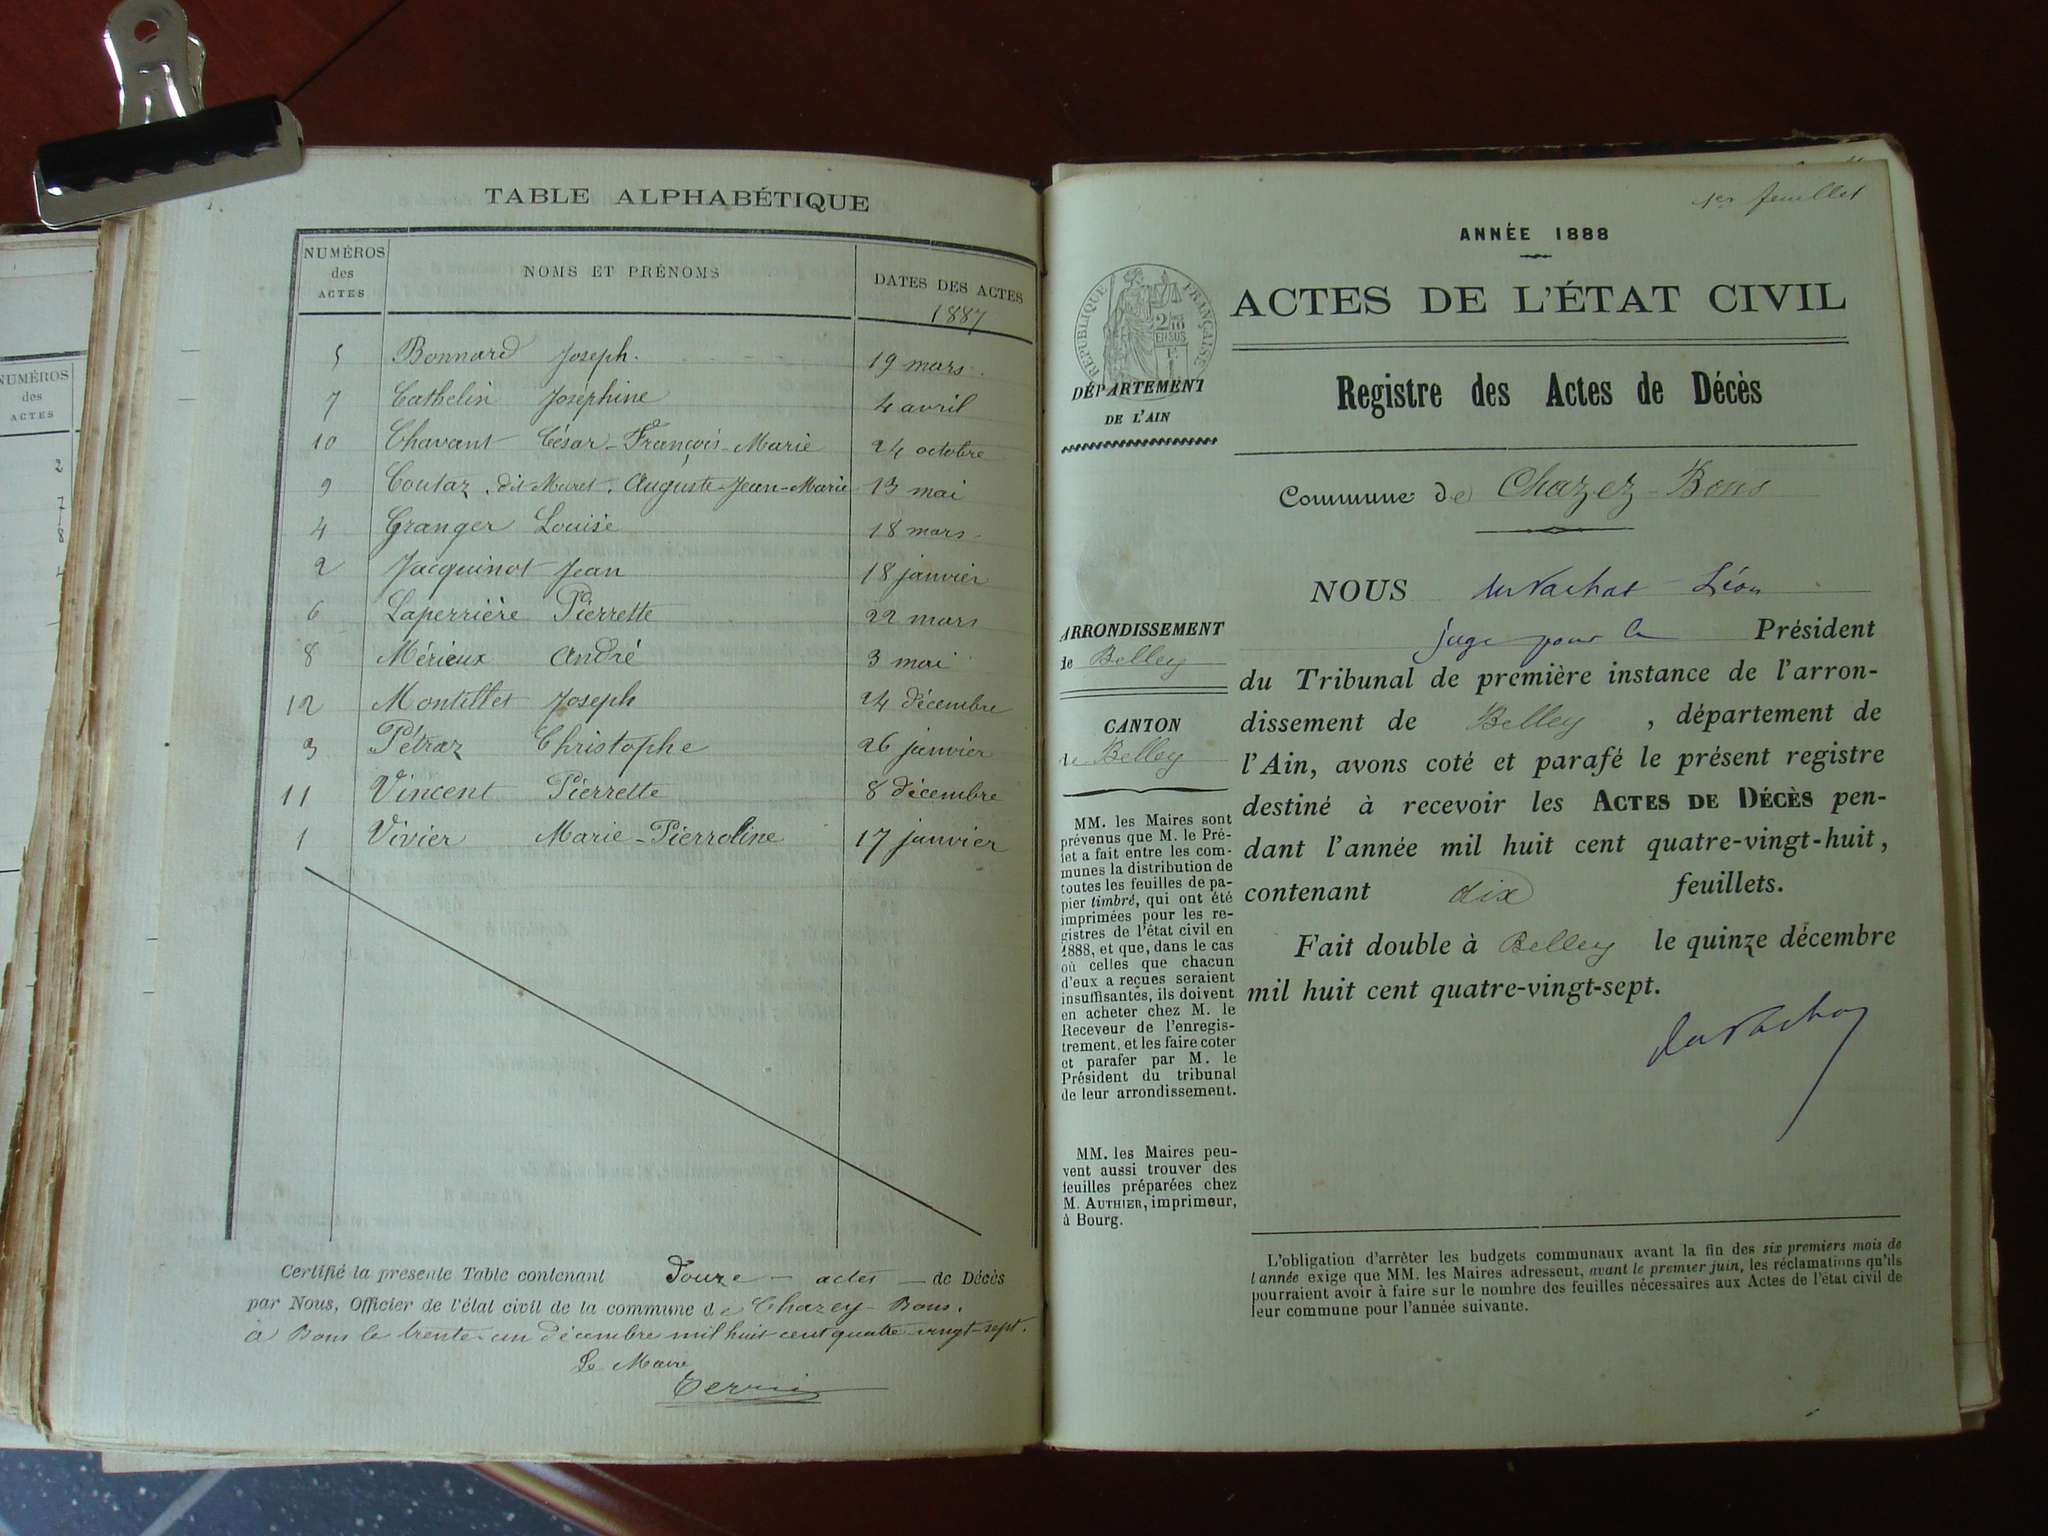 NUMÉROS
des
ACTES
2
7
8
TABLE ALPHABÉTIQUE
NUMÉROS des ACTES NOMS ET PRÉNOMS DATES DES ACTES
1887
5 Bonnard Joseph. 19 mars.
7 Cathelin Joséphine 4 avril
10 Chavant César-François-Marie 24 octobre
9 Coutaz, dit Muret. Auguste-Jean-Marie 13 mai
4 Granger Louise 18 mars
2 Jacquinot Jean 18 janvier
6 Laperrière Pierrette 22 mars
8 Mérieux André 3 mai
12 Montillet Joseph 24 décembre
3 Pétraz Christophe 26 janvier
11 Vincent Pierrette 8 décembre
1 Vivier Marie-Pierroline 17 janvier
Certifié la présente Table contenant Douze - actes - de Décès
par Nous, Officier de l'état civil de la commune de Chazey-Bons.
à Bons le trente-un décembre mil huit cent quatre-vingt-sept.
Le Maire
1er feuillet
ANNÉE 1888
RÉPUBLIQUE FRANÇAISE
2/10 EN SUS
ACTES DE L'ÉTAT CIVIL
DÉPARTEMENT
DE L'AIN
Registre des Actes de Décès
Commune de Chazey-Bons
ARRONDISSEMENT
de Belley
CANTON
de Belley
MM. les Maires sont
prévenus que M. le Pré-
fet a fait entre les com-
munes la distribution de
toutes les feuilles de pa-
pier timbré, qui ont été
imprimées pour les re-
gistres de l'état civil en
1888, et que, dans le cas
où celles que chacun
d'eux a reçues seraient
insuffisantes, ils doivent
en acheter chez M. le
Receveur de l'enregis-
trement, et les faire coter
et parafer par M. le
Président du tribunal
de leur arrondissement.
MM. les Maires peu-
vent aussi trouver des
feuilles préparées chez
M. AUTHIER, imprimeur,
à Bourg.
NOUS Léon
juge pour le Président
du Tribunal de première instance de l'arron-
dissement de Belley, département de
l'Ain, avons coté et parafé le présent registre
destiné à recevoir les ACTES DE DÉCÈS pen-
dant l'année mil huit cent quatre-vingt-huit,
contenant dix feuillets.
Fait double à Belley le quinze décembre
mil huit cent quatre-vingt-sept.
L'obligation d'arrêter les budgets communaux avant la fin des six premiers mois de
l'année exige que MM. les Maires adressent, avant le premier juin, les réclamations qu'ils
pourraient avoir à faire sur le nombre des feuilles nécessaires aux Actes de l'état civil de
leur commune pour l'année suivante.